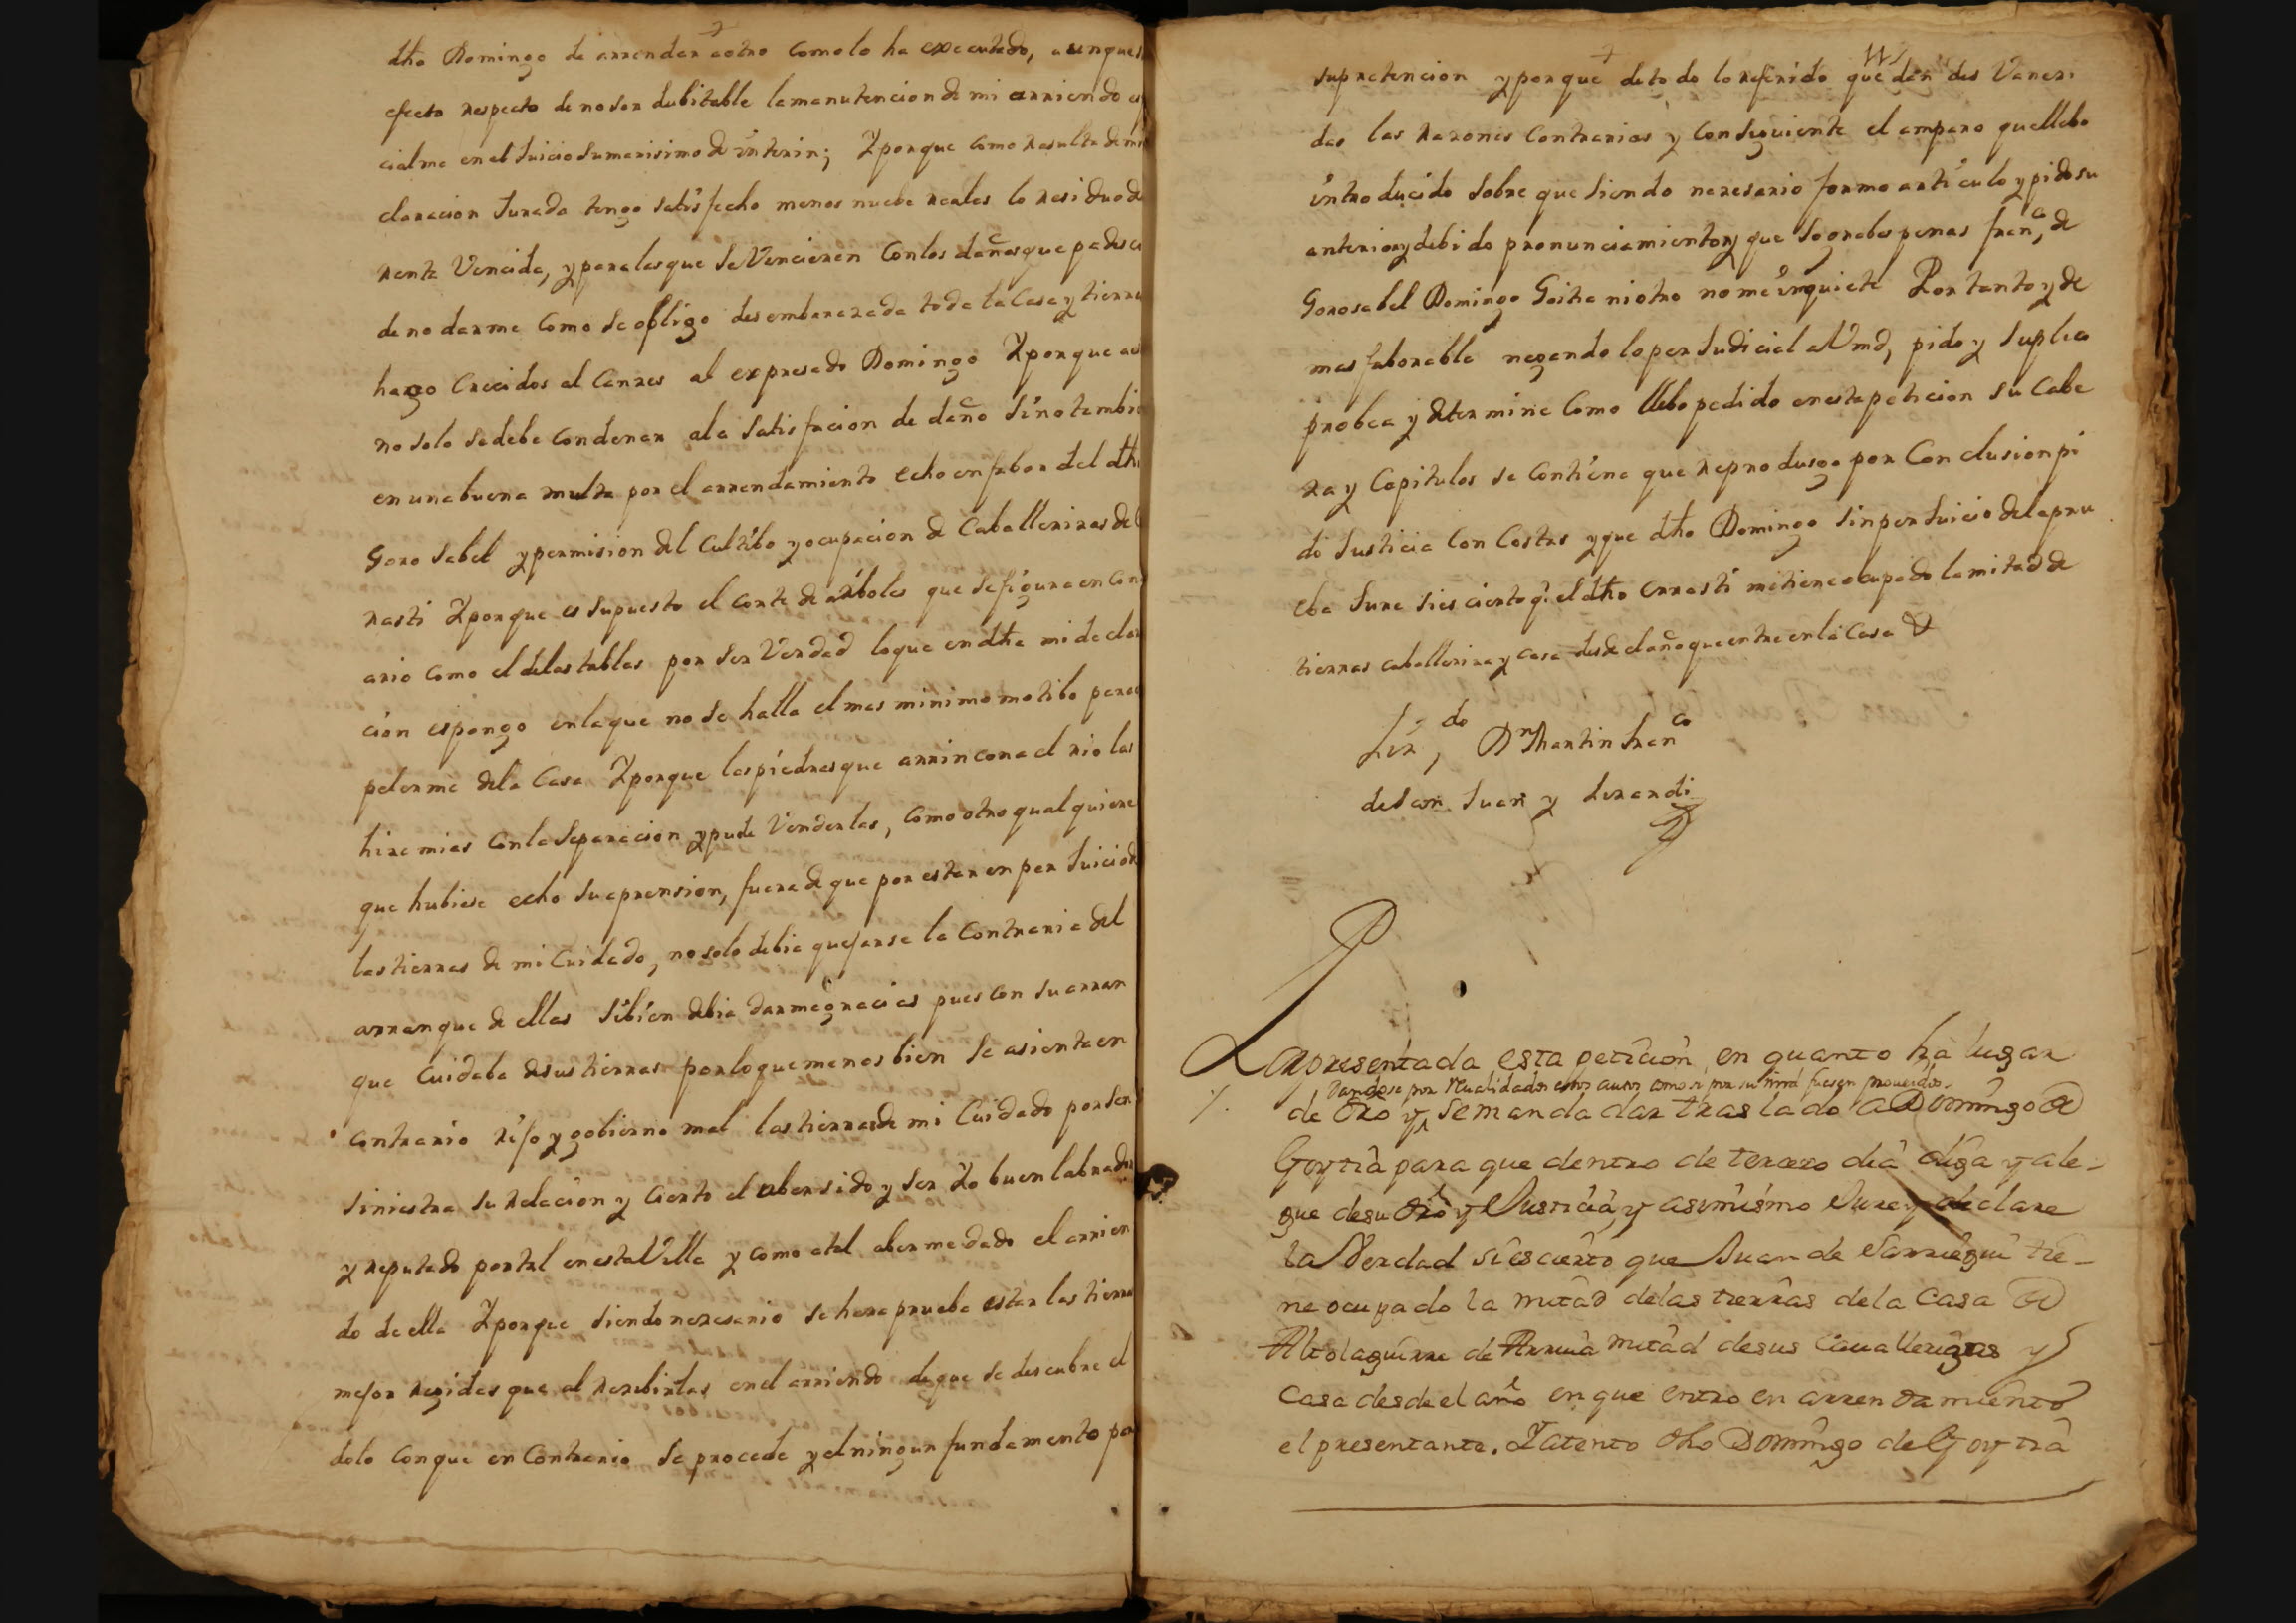 dho Domingo de arrendar aotro Comolo ha executado, aunque
efecto respecto de no ser dubitable la manutencion de mi arriendo
cialme en el Juicio Sumarisimo de interin; Yporque como resulta de mi
claracion Jurada tengo satisfecho menos nuebe reales lo residuo de
renta Vencida, y para las que se Vencieren Con los daños que padesco
de no darme Como se obligo desembarazada toda la Casa y tierras
hago Crecidos al Canres al expresado Domingo Yporque
no solo sedebe condenar ala satisfacion de daño sino tambien
en una buena multa por el arrendamiento echo en fabor del dho
Gorosabel y permision del Cultibo y ocupacion de Caballerizas del
rasti Yporque es supuesto el corte de arboles que se figura en Con
ario como el delas tablas por ser Verdad lo que en dha mi declara
cion espongo en la que no se halla el mas minimo motibo para
pelerme dela Casa Yporque las piedras que arrincona el rio las
hize mias Con la Separacion y pude Venderlas, como otro qualquiera
que hubiese echo su aprension, fuera de que por estar en per Juicio de
las tierras de mi Cuidado, no solo debia quejarse la Contraria del
arranque de ellas sibien debia darme gracias pues con su arran
que Cuidaba de sus tierras por lo que menos bien se asienta en
contrario rijo y gobierno mal las tierras de mi Cuidado por ser
siniestra su relacion y Cierto el aber sido y ser Yo buen labrador
y reputado por tal en esta Villa y como atal aberme dado el arrien
do de ella Yporque siendo nezesario se hara prueba estar las tierras
mejor regidas que al rezibirlas en el arriendo de que se descubre el
dolo con que en Contrario se procede y el ningun fundamento para
su pretencion y porque de todo lo referido quedan des Vaneci
das las razones Contrarias y Consiguiente el amparo que llebo
introducido sobre que siendo nezesario formo articulo y pido su
anterior y debido pronunciamiento y que so grabes penas Franco, de
Gorosabel Domingo Goitia ni otro no me inquiete Por tanto y de
mas faborable negando lo per Judicial a Vmd, pido y Suplico
probea y determine Como llebo pedido en esta peticion su Cabe
za y Capitulos se Contiene que reprodusgo por Conclusion pi
do Justicia Con Costas y que dho Domingo sin per Juicio dela pru
eba Jure si es cierto q. el dho Errasti me tiene ocupado la mitad de
tierras caballeriza y casa desde el año que entre en la Casa &
Liz,do Dn Martin Franco
de San Juan y Lizardi
La presentada esta peticion en quanto ha lugar
Dandose por Nulidados estos autos como si por su mrd fuesen proveidos.
de dro y, se manda dar traslado a Domingo de
Goytia para que dentro de tercero dia diga y ale-
gue desu dro y Justicia, y asimismo Jure y declare
la Verdad si es cierto que Juan de Sarriegui tie-
ne ocupado la mitad delas tierras dela Casa de
Altolaguirre de Arrua mitad desus Cauallerizas y
Casa desde el año en que entro en arrendamiento
el presentante. Y atento dho Domingo de Goytia